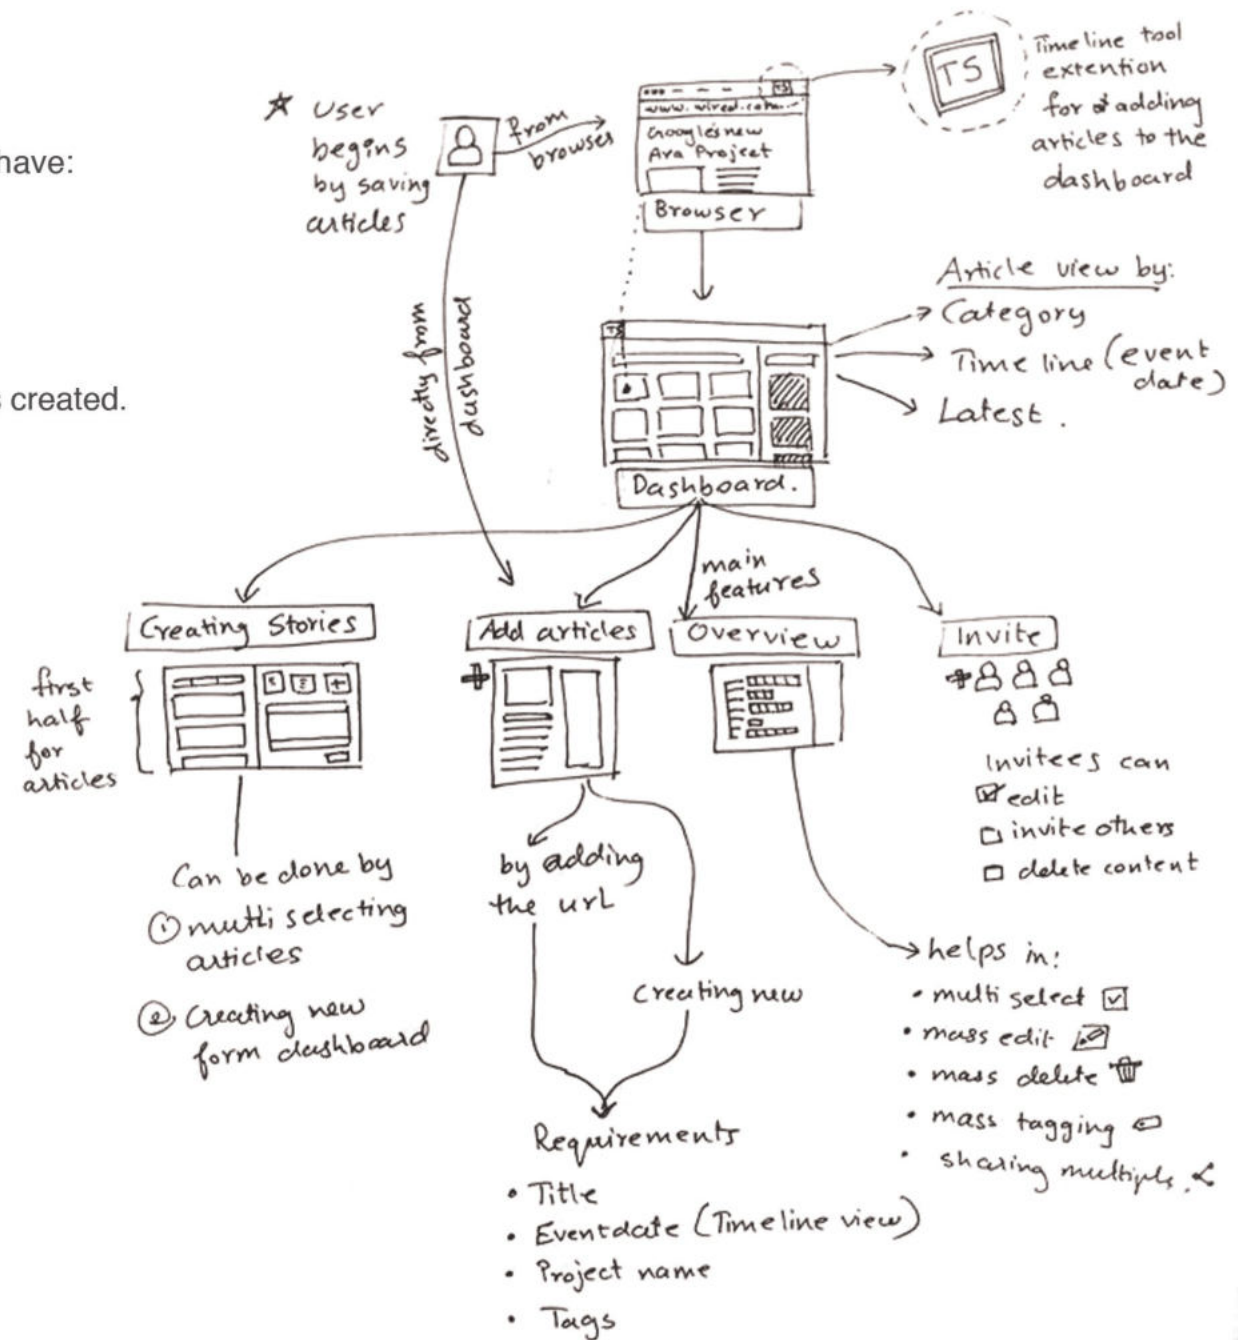 have:
s created.
User
begins
by saving
articles
from
browser
TS
www.wired.com
Google's new
Ara Project
Browser
TS
Timeline tool
extention
for adding
articles to the
dashboard
directly from
dashboard
TS
Dashboard.
Article view by:
Category
Time line (event
date)
Latest.
main
features
Creating Stories
first
half
for
articles
Can be done by
① multi selecting
articles
② Creating new
form dashboard
Add articles
by adding
the url
Creating new
Requirements
• Title
• Eventdate (Timeline view)
• Project name
• Tags
Overview
helps in:
• multi select
• mass edit
• mass delete
• mass tagging
• sharing multiple.
Invite
Invitees can
edit
invite others
delete content